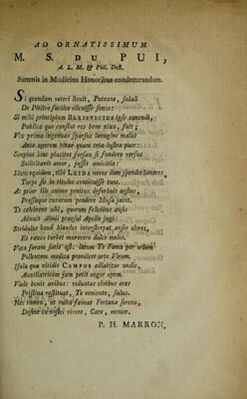 AD ORNATISSIMUM
M. S. DU PUI,
A. L. M. & Phil. Doct.
Summis in Medicina Honoribus condecorandum.
Si quondam veteri licuit, Puteane, sodali
De Plectro faciles elicuisse sonos:
Si mihi principium ipse canendi,
Publica quo constat res bene nixa, fuit;
Vix prima ingenuas sparsit lanugine malas
Ante aperem vitae quam tria lustra puer:
Scepius hinc placitos forsan si fundere versus
Sollicitavit amor, jussit amicitia:
Nunc equidem, tibi LEIDA novos dum spondet honores,
Turpe sit in vestros conticuisse tuos.
At prior ille animo penitus deferbuit aestus,
Presseque curarum pondere Musa jacet.
Te celebrent alii, quorum felicibus ausis
Adnuit Aonii praesul Apollo jugi:
Stridulus haud blandus interstrepat anser olores,
Et raucos turbet murmure dulce melos.
Vota feram satis est: latum Te Fama per orbem
Pollentem medica praedicet arte Virum.
Isala qua nitidis CAMPOS adlabitur undis,
Auxiliatricem jam petit aeger opem.
Vade bonis avibus: viduatas civibus oras
Pristina restituat, Te veniente, salus.
Nec tamen, ut multo faveat Fortuna sereno,
Desine tu nostri vivere, Care, memor.
P. H. MARRON.